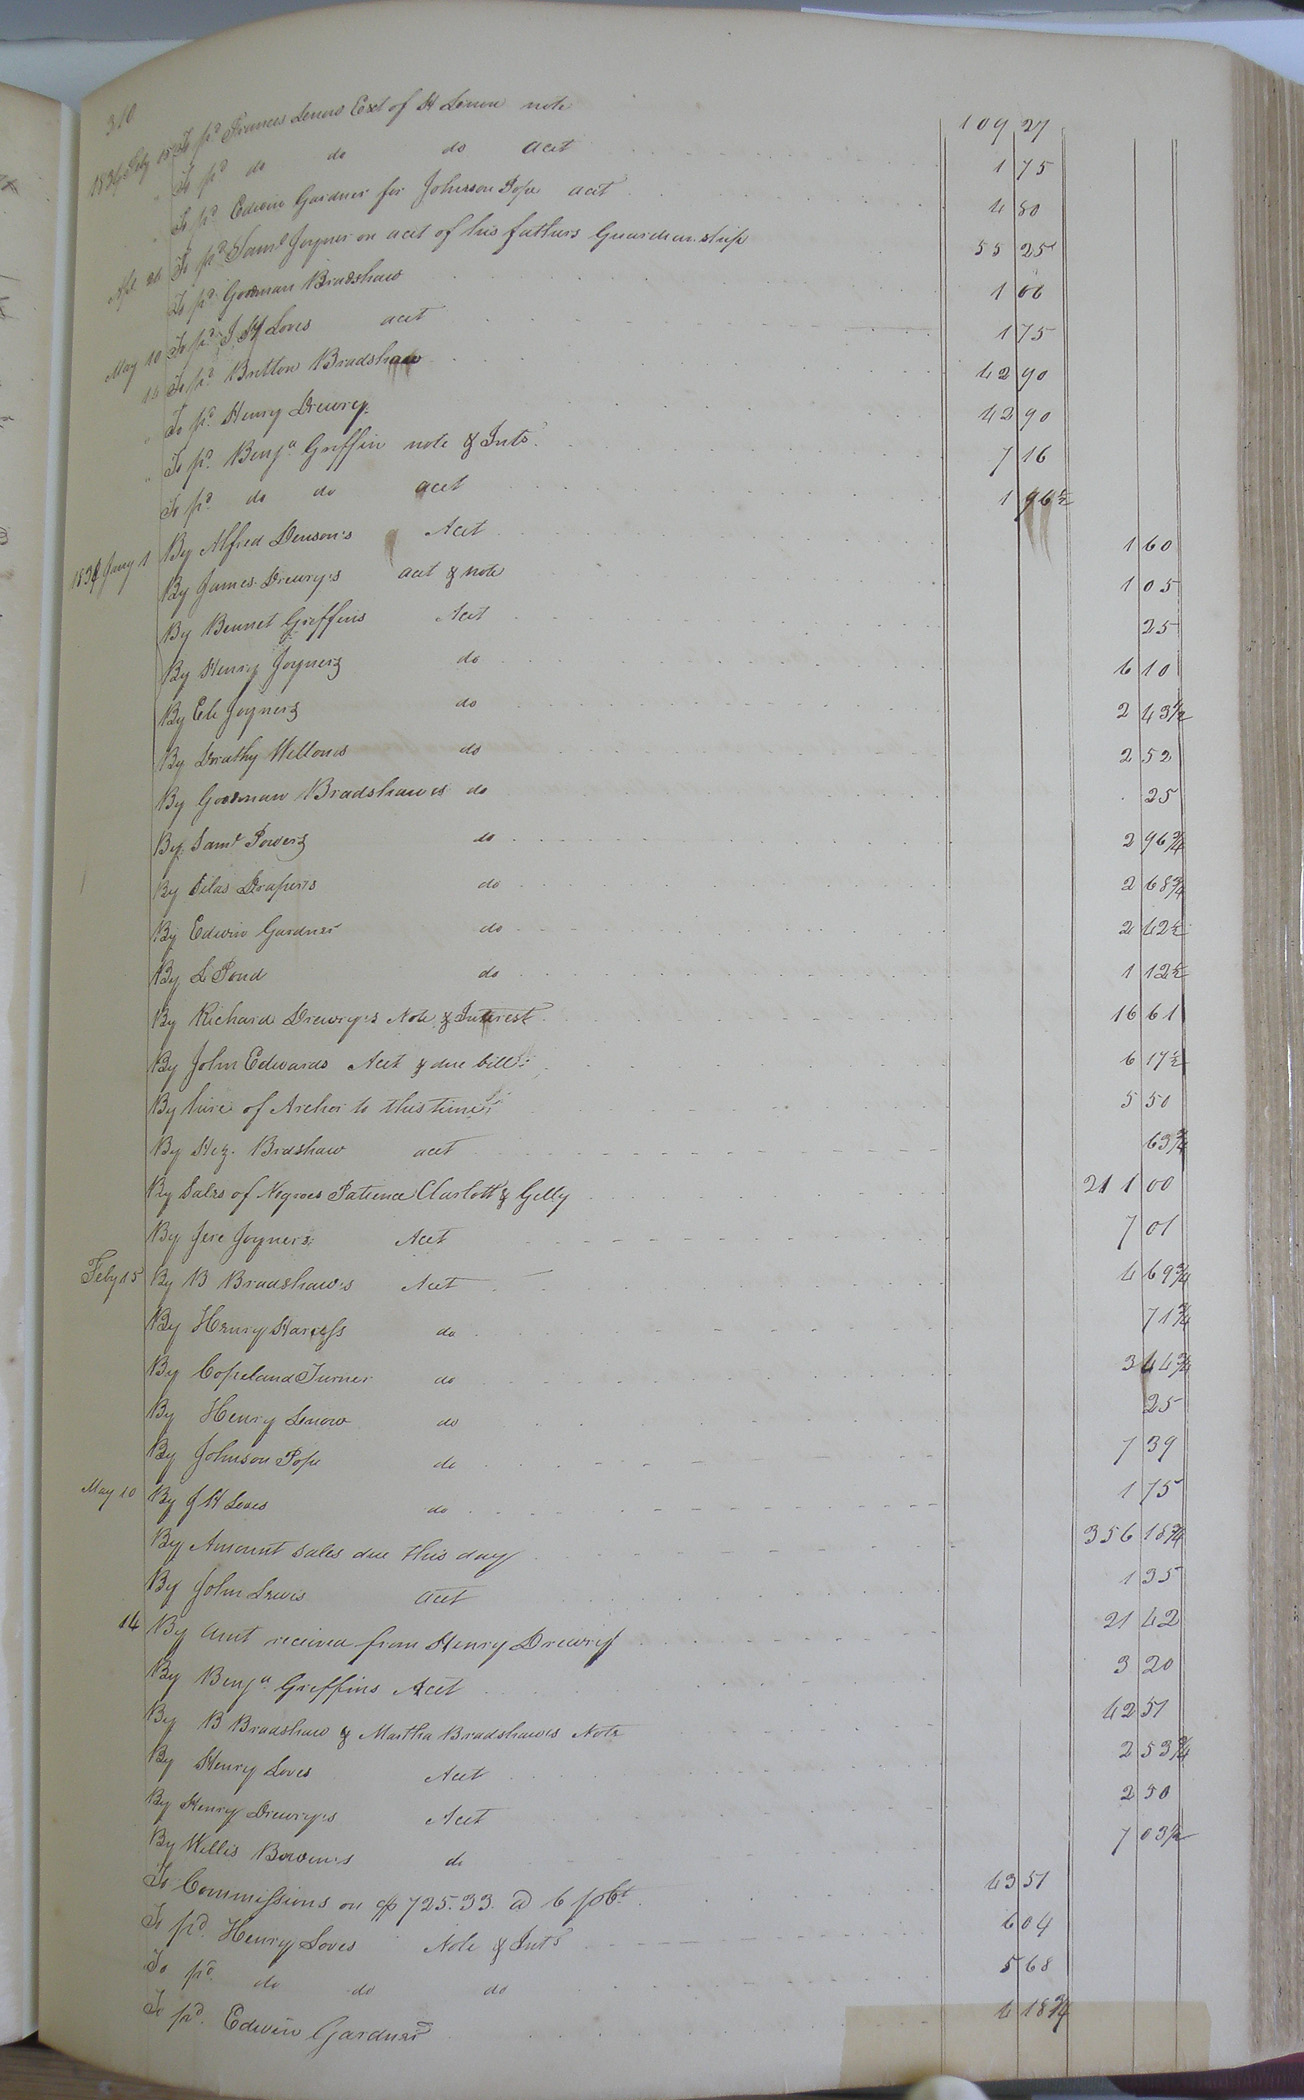 310
1834 Feby 15 To pd. Frances Lenow Exx of H Lenow note 109 27
" To pd do do do acct 1 75
" To pd. Edwin Gardner for Johnson Pope acct 4 80
Apl 26 To pd Saml Joyner on acct of his fathers Guardianship 55 25
To pd. Goodman Bradshaw 1 06
May 10 To pd. J H Loves acct 1 75
14 To pd. Britton Bradshaw 42 90
" To pd. Henry Drewry 42 90
" To pd. Benja Griffin note & Ints. 7 16
To pd. do do acct 1 96½
1834 Jany 1 By Alfred Denson's Acct 1 60
By James Drewry's acct & note 1 05
By Bennet Griffins Acct 25
By Henry Joyners do 6 10
By Eli Joyners do 2 43½
By Drathy Wellons do 2 52
By Goodman Bradshaws do 25
By Saml Powers do 2 96¾
By Silas Drapers do 2 68¾
By Edwin Gardner do 2 42½
By L Pond do 1 12½
By Richard Drewry's Note & Interest 16 61
By John Edwards Acct & due bill 6 17½
By hire of Archer to this time 5 50
By Hez. Bradshaw acct 63¾
By Sales of Negroes Patience Charlott & Gelly 211 00
By Jere Joyners Acct 7 01
Feby 15 By B Bradshaw's Acct 4 69¾
By Henry Haress do 71¾
By Copeland Turner do 3 44¾
By Henry Lenow do 25
By Johnson Pope do 7 39
May 10 By J H Loves do 1 75
By Amount sales due this day 356 18¾
By John Lewis acct 1 35
14 By Amt received from Henry Drewry 21 42
By Benja Griffins Acct 3 20
By B Bradshaw & Martha Bradshaws Note 42 51
By Henry Loves Acct 2 53¾
By Henry Drewry's Acct 2 50
By Willis Bowen's do 7 03½
To Commissions on $725.33 @ 6 pCt 43 51
To pd. Henry Loves Note & Ints 6 04
To pd. do do do 5 68
To pd. Edwin Gardner 4 18¾